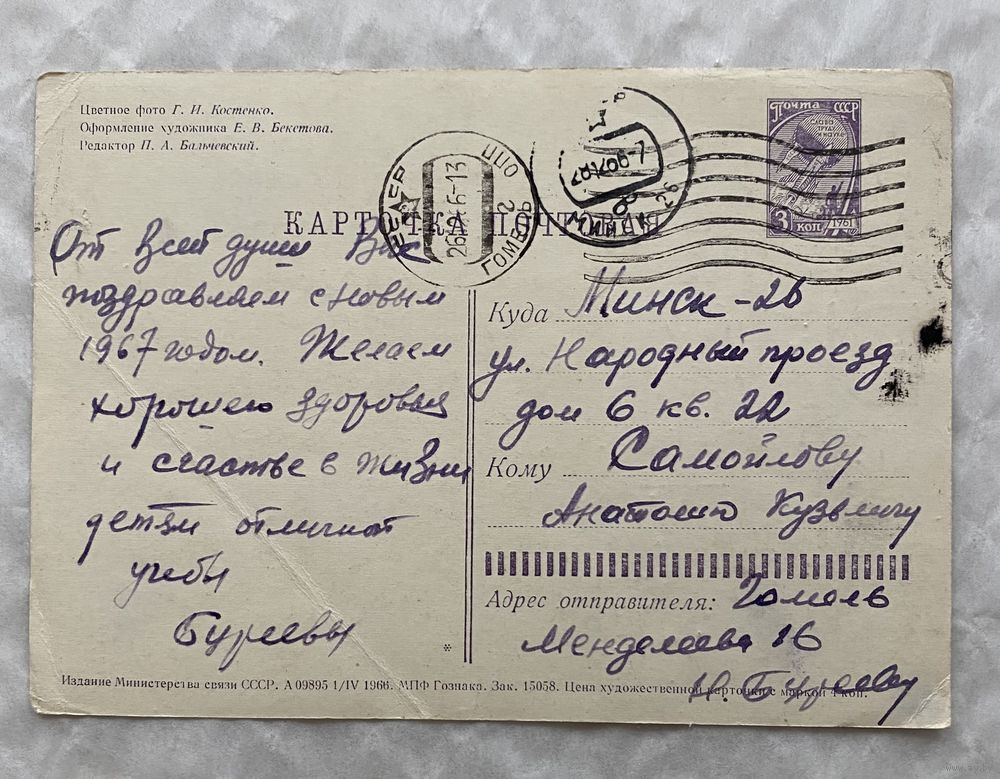 Цветное фото Г. И. Костенко.
Оформление художника Е. В. Бекетова.
Редактор П. А. Бальчевский.
Почта СССР
3 коп 1961
БССР
ГОМЕЛЬ
КАРТОЧКА ПОЧТОВАЯ
От всей души Вас
поздравляем с новым
1967 годом. Желаем
хорошего здоровья
и счастье в жизни
детям отличной
учебы
Буреевы
Куда Минск-26
ул. Народный проезд
дом 6 кв. 22
Кому Самойлову
Анатолию Кузьмичу
Адрес отправителя: Гомель
Менделеева 16
Издание Министерства связи СССР. А 09895 1/IV 1966. МПФ Гознака. Зак. 15058. Цена художественной карточки с маркой 4 коп.